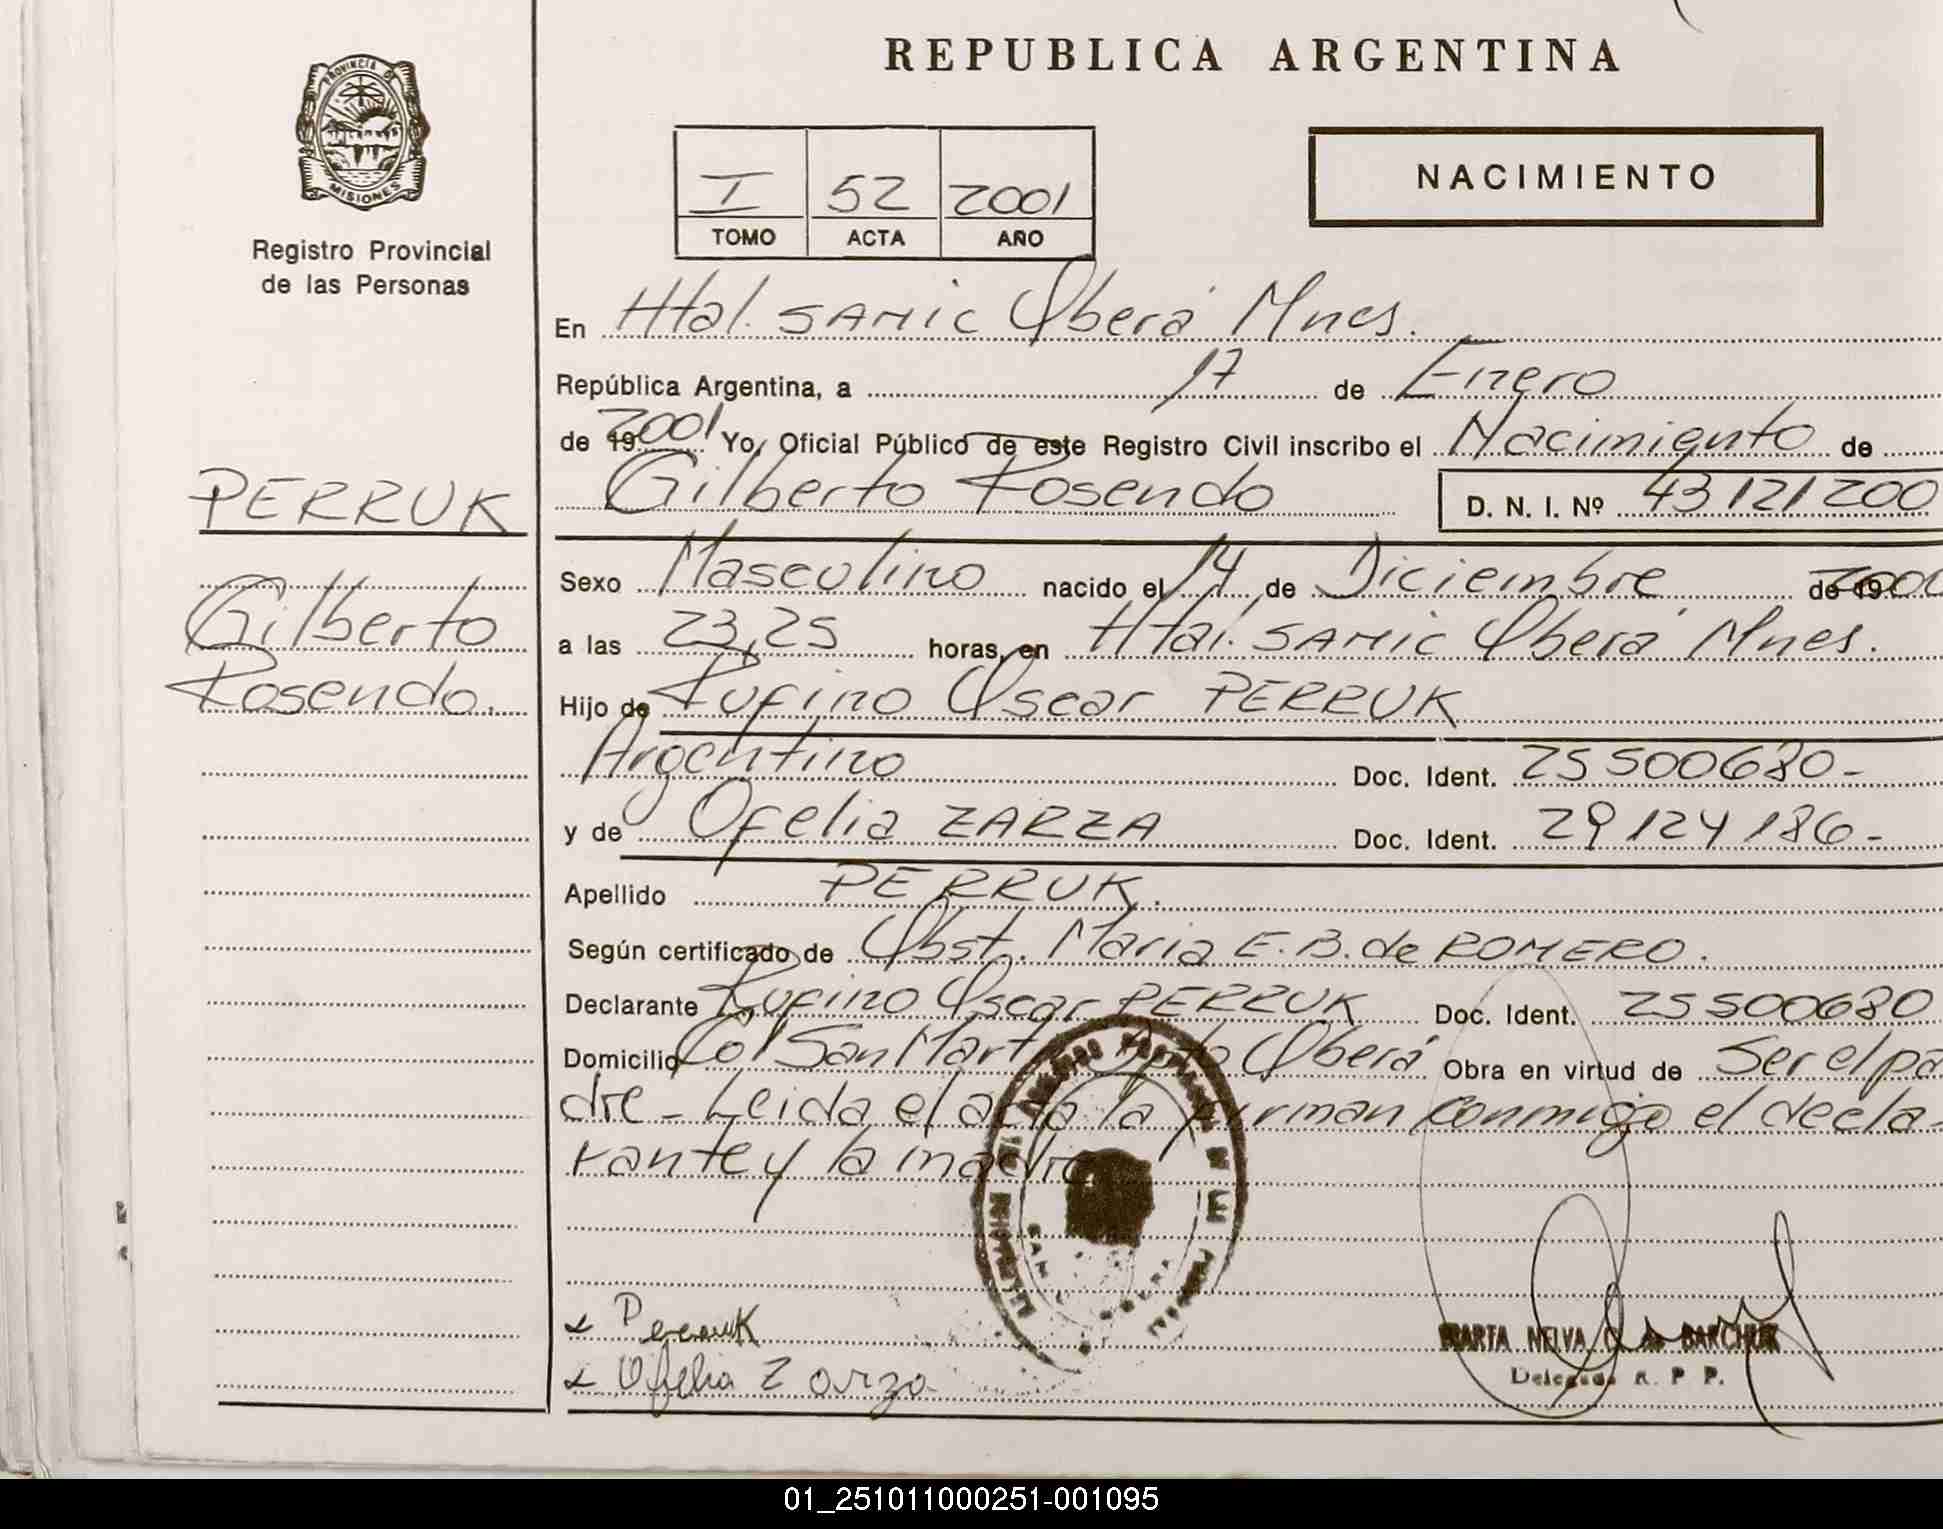 REPUBLICA ARGENTINA
PROVINCIA DE
MISIONES
Registro Provincial
de las Personas
I 52 2001
TOMO ACTA AÑO
NACIMIENTO
En Htal. SAMIC Oberá Mnes.
República Argentina, a 17 de Enero
de 19 2001 Yo, Oficial Público de este Registro Civil inscribo el Nacimiento de
Gilberto Rosendo D. N. I. Nº 43121200
PERRUK
Gilberto
Rosendo.
Sexo Masculino nacido el 14 de Diciembre de 19 2000
a las 23,25 horas, en Htal. SAMIC Oberá Mnes.
Hijo de Rufino Oscar PERRUK
Argentino Doc. Ident. 25500680-
y de Ofelia ZARZA Doc. Ident. 29124186-
Apellido PERRUK.
Según certificado de Obst. Maria E. B. de ROMERO.
Declarante Rufino Oscar PERRUK Doc. Ident. 25500680
Domicilio Col San Martin Dpto Oberá Obra en virtud de Ser el pa
dre - Leida el acta la firman conmigo el decla-
rante y la madre
x Perruk
x Ofelia Zarza
MARTA NELVA de BARCHUK
Delegada R. P. P.
01_251011000251-001095